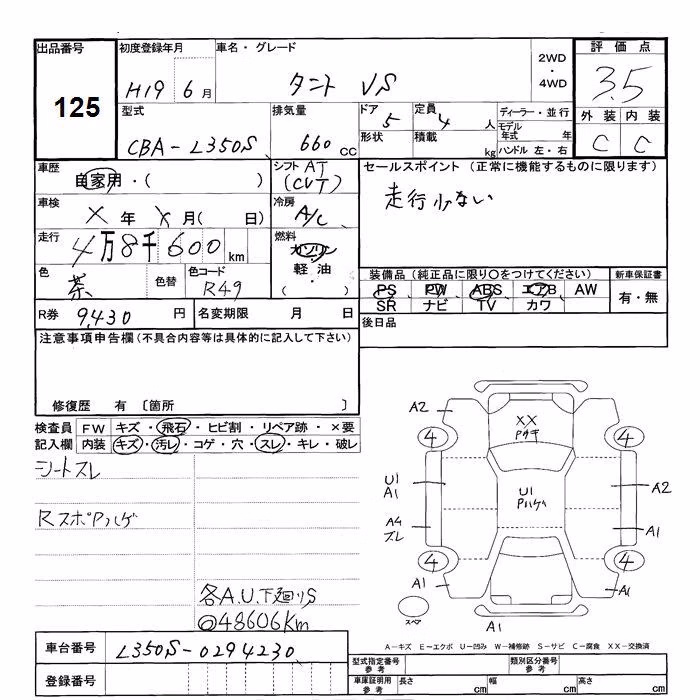 出品番号
125
初度登録年月
H19 6月
車名・グレード
タント VS
2WD
・
4WD
評価点
3.5
型式
CBA-L350S
排気量
660 CC
ドア
5
形状
定員
4 人
積載
kg
ディーラー・並行
モデル年式 年
ハンドル 左・右
外装 内装
C C
車歴
自家用・( )
シフト AT
(CVT)
セールスポイント (正常に機能するものに限ります)
走行少ない
車検
X 年 X 月( 日)
冷房
A/C
走行
4万8千600km
燃料
ガソリン
軽油
・
( )
色
茶
色替
色コード
R49
装備品(純正品に限り○をつけてください)
PS PW ABS エアB AW
SR ナビ TV カワ
新車保証書
有・無
R券 9,430 円
名変期限 月 日
後日品
注意事項申告欄(不具合内容等は具体的に記入して下さい)
修復歴 有 〔箇所 〕
検査員
記入欄
FW キズ・飛石・ヒビ割・リペア跡・×要
内装 キズ・汚レ・コゲ・穴・スレ・キレ・破レ
シートスレ
RスポPハゲ
各A.U.下廻りS
◎48606Km
A2
XX
Pキキ
4 4
U1
A1
U1
Pハゲ
A2
A4
スレ
A1
4 4
A1 A1
スペア
A1
A-キズ E-エクボ U-凹み W-補修跡 S-サビ C-腐食 XX-交換済
車台番号 L350S-0294230
登録番号
型式指定番号
参考
類別区分番号
参考
車庫証明用
参考
長さ cm
幅 cm
高さ cm